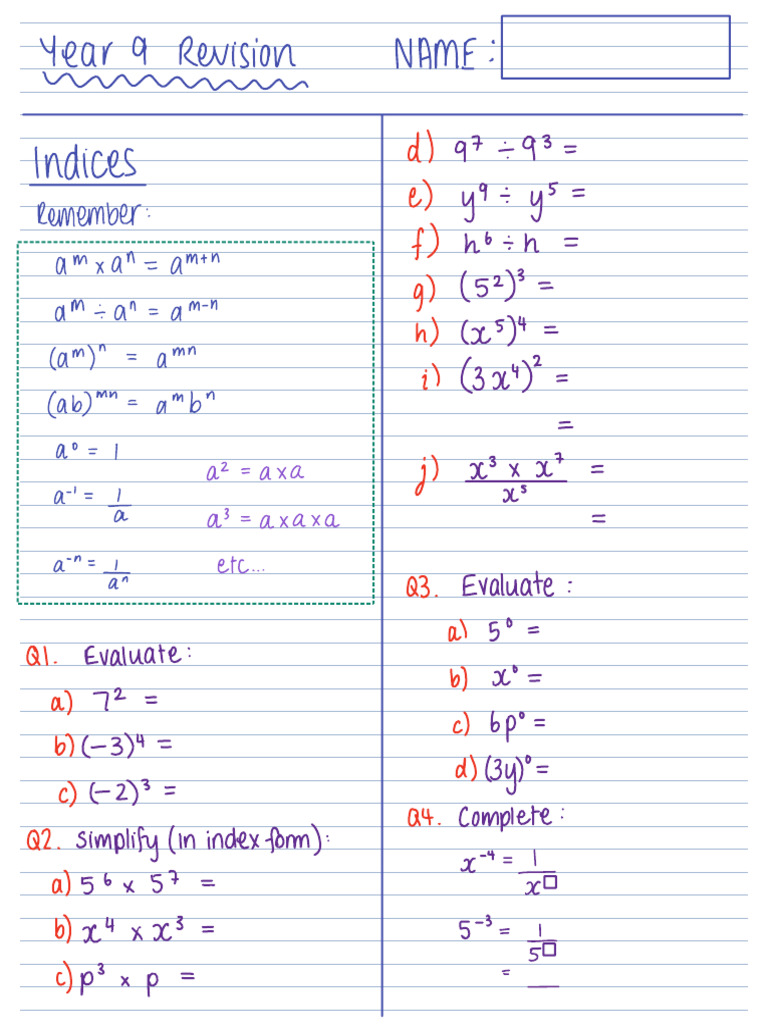 Year 9 Revision
NAME:
Indices
Remember:
aᵐ × aⁿ = aᵐ⁺ⁿ
aᵐ ÷ aⁿ = aᵐ⁻ⁿ
(aᵐ)ⁿ = aᵐⁿ
(ab)ᵐⁿ = aᵐbⁿ
a⁰ = 1
a² = a × a
a⁻¹ = 1/a
a³ = a × a × a
a⁻ⁿ = 1/aⁿ
etc...
Q1. Evaluate:
a) 7² =
b) (−3)⁴ =
c) (−2)³ =
Q2. Simplify (in index form):
a) 5⁶ × 5⁷ =
b) x⁴ × x³ =
c) p³ × p =
d) 9⁷ ÷ 9³ =
e) y⁹ ÷ y⁵ =
f) h⁶ ÷ h =
g) (5²)³ =
h) (x⁵)⁴ =
i) (3x⁴)² =
=
j) (x³ × x⁷)/x⁵ =
=
Q3. Evaluate:
a) 5⁰ =
b) x⁰ =
c) 6p⁰ =
d) (3y)⁰ =
Q4. Complete:
x⁻⁴ = 1/x□
5⁻³ = 1/5□
= __